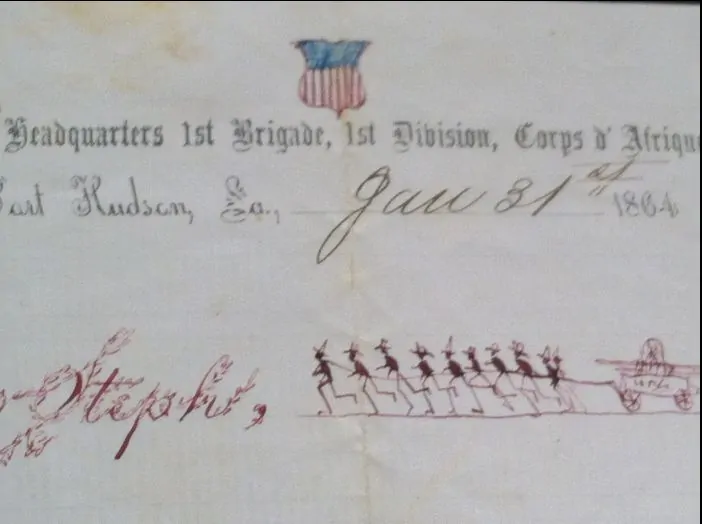 Headquarters 1st Brigade, 1st Division, Corps d' Afrique
Port Hudson, La., Jan 31st 1864
Steph,